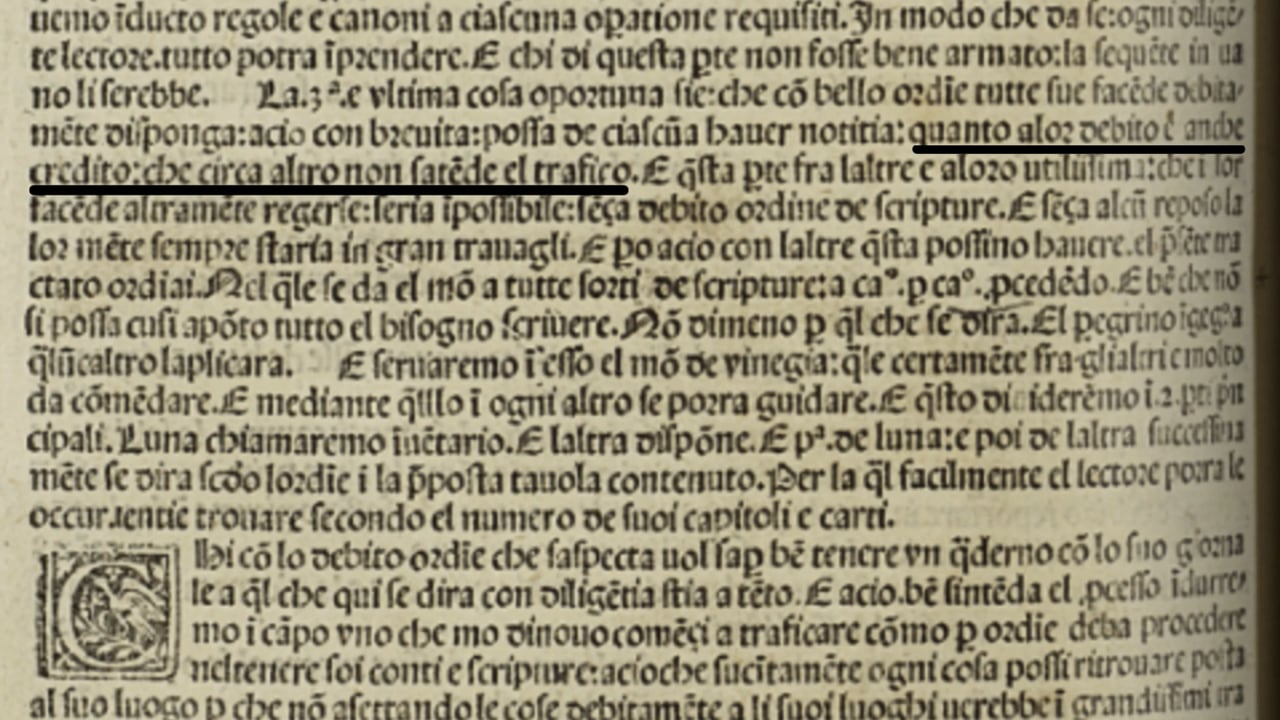 uemo ĩducto regole e canoni a ciaſcuna opatione requiſiti. Jn modo che da ſe: ogni diligẽ
te lectore. tutto potra ĩprendere. E chi di queſta ꝑte non foſſe bene armato: la ſequẽte in ua
no li ſerebbe. La .3ª. e vltima coſa oportuna ſie: che cõ bello ordĩe tutte ſue facẽde debita
mẽte diſponga: acio con breuita: poſſa de ciaſcũa hauer notitia: quanto alor debito e anche
credito: che circa altro non ſatẽde el trafico. E q̃ſta ꝑte fra laltre e aloro utiliſſima: che ĩ lor
facẽde altramẽte regerſe: ſeria ĩpoſſibile: ſẽça debito ordine de ſcripture. E ſẽça alcũ repoſo la
lor mẽte ſempre ſtaria in gran trauagli. E ꝑo acio con laltre q̃ſta poſſino hauere. el p̃ſẽte tra
ctato ordiai. Nel q̃le ſe da el mõ a tutte ſorti de ſcripture: a caº. ꝑ caº. ꝓcedẽdo. E bẽ che nõ
ſi poſſa cuſi apõto tutto el biſogno ſcriuere. Nõ dimeno ꝑ q̃l che ſe dira. El pegrino
q̃lũcaltro laplicara. E ſeruaremo ĩ eſſo el mõ de vinegia: q̃le certamẽte fra glialtri e molto
da cõmẽdare. E mediante q̃llo ĩ ogni altro ſe porra guidare. E q̃ſto diuideremo ĩ .2. ꝑti pñ
cipali. Luna chiamaremo ĩuẽtario. E laltra diſpõne. E pª. de luna: e poi de laltra ſucceſſiua
mẽte ſe dira ſcd̃o lordĩe ĩ la p̃poſta tauola contenuto. Per la q̃l facilmente el lectore porra le
occurrentie trouare ſecondo el numero de ſuoi capitoli e carti.
CHi cõ lo debito ordĩe che ſaſpecta uol ſaꝑ bẽ tenere vn q̃derno cõ lo ſuo giorna
le a q̃l che qui ſe dira con diligẽtia ſtia a tẽto. E acio bẽ ſintẽda el ꝓceſſo ĩdurre
mo ĩ cãpo vno che mo dinouo comẽçi a traficare cõmo ꝑ ordĩe deba procedere
nel tenere ſoi conti e ſcripture: acioche ſucĩtamẽte ogni coſa poſſi ritrouare poſta
al ſuo luogo ꝑ che nõ aſettando le coſe debitamẽte a li ſuoi luoghi uerebbe ĩ grandiſſimi tra